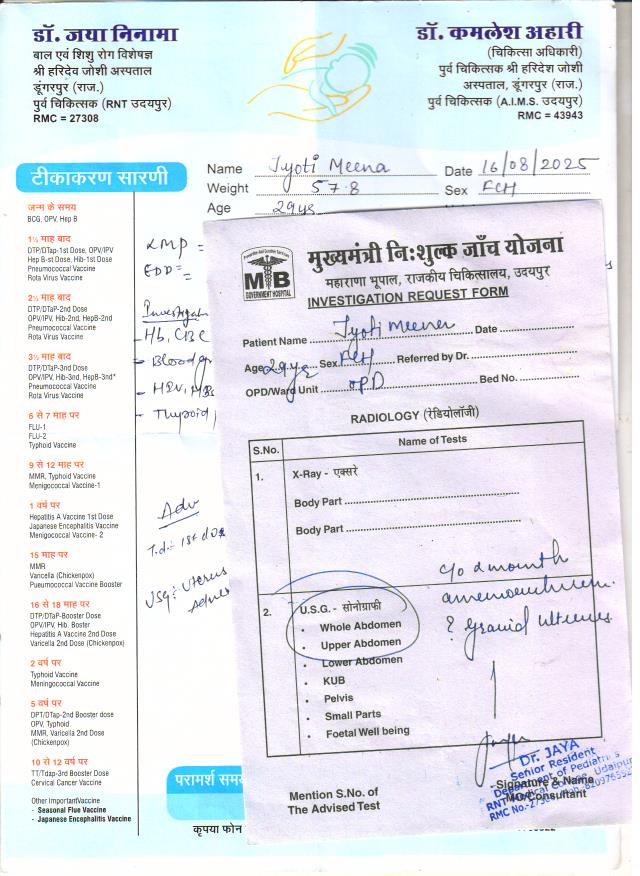 डॉ. जया निनामा
बाल एवं शिशु रोग विशेषज्ञ
श्री हरिदेव जोशी अस्पताल
डूंगरपुर (राज.)
पुर्व चिकित्सक (RNT उदयपुर)
RMC = 27308
डॉ. कमलेश अहारी
(चिकित्सा अधिकारी)
पुर्व चिकित्सक श्री हरिदेश जोशी
अस्पताल, डूंगरपुर (राज.)
पुर्व चिकित्सक (A.I.M.S. उदयपुर)
RMC = 43943
टीकाकरण सारणी
जन्म के समय
BCG, OPV, Hep B
1½ माह बाद
DTP/DTap-1st Dose, OPV/IPV
Hep B-st Dose, Hib-1st Dose
Pneumococcal Vaccine
Rota Virus Vaccine
2½ माह बाद
DTP/DTaP-2nd Dose
OPV/IPV, Hib-2nd, HepB-2nd
Pneumococcal Vaccine
Rota Virus Vaccine
3½ माह बाद
DTP/DTaP-3rd Dose
OPV/IPV, Hib-3nd, HepB-3nd*
Pneumococcal Vaccine
Rota Virus Vaccine
6 से 7 माह पर
FLU-1
FLU-2
Typhoid Vaccine
9 से 12 माह पर
MMR, Typhoid Vaccine
Menigococcal Vaccine-1
1 वर्ष पर
Hepatitis A Vaccine 1st Dose
Japanese Encephalitis Vaccine
Menigococcal Vaccine- 2
15 माह पर
MMR
Varicella (Chickenpox)
Pueumococcal Vaccine Booster
16 से 18 माह पर
DTP/DTaP-Booster Dose
OPV/IPV, Hib. Boster
Hepatitis A Vaccine 2nd Dose
Varicella 2nd Dose (Chickenpox)
2 वर्ष पर
Typhoid Vaccine
Meningococcal Vaccine
5 वर्ष पर
DPT/DTap-2nd Booster dose
OPV, Typhoid
MMR, Varicella 2nd Dose
(Chickenpox)
10 से 12 वर्ष पर
TT/Tdap-3rd Booster Dose
Cervical Cancer Vaccine
Other ImportantVaccine
- Seasonal Flue Vaccine
- Japanese Encephalitis Vaccine
Name Jyoti Meena Date 16/08/2025
Weight 57.8 Sex FCH
Age 29 ye
LMP =
EDD =
Investigat
- Hb, CBC
- Blood gr
- HIV, HBs
- Thyroid
Adv
T.d:- 1st dos
USG: Uterus
परामर्श सम
कृपया फोन
MB
GOVERNMENT HOSPITAL
मुख्यमंत्री निःशुल्क जाँच योजना
महाराणा भूपाल, राजकीय चिकित्सालय, उदयपुर
INVESTIGATION REQUEST FORM
Patient Name Jyoti Meena Date
Age 29 ye Sex FCH Referred by Dr.
OPD/Ward Unit OPD Bed No.
RADIOLOGY (रेदियोलॉजी)
S.No. Name of Tests
1. X-Ray - एक्सरे
Body Part
Body Part
2. U.S.G. - सोनोग्राफी
• Whole Abdomen
• Upper Abdomen
• Lower Abdomen
• KUB
• Pelvis
• Small Parts
• Foetal Well being
c/o 2 month
? gravid uterus
Mention S.No. of
The Advised Test
Signature & Name
MO/Consultant
Dr. JAYA
Senior Resident
Department of Pediatrics
RNT Medical College, Udaipur